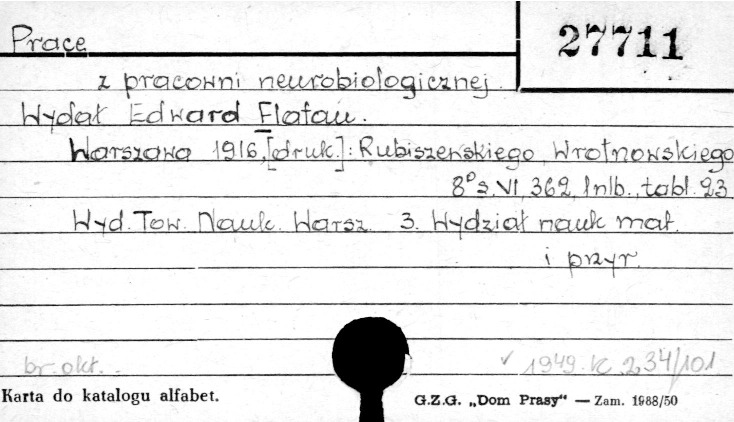 Prace
27711
z pracowni neurobiologicznej.
Wydał Edward Flatau.
Warszawa 1916, [druk.]: Rubiszewskiego, Wrotnowskiego
8° s. VI, 362, 1 nlb., tabl. 23
Wyd. Tow. Nauk. Warsz. 3. Wydział nauk mat.
i przyr.
br. okł.
✓ 1949 K 234/101
Karta do katalogu alfabet.
G.Z.G. „Dom Prasy“ — Zam. 1988/50